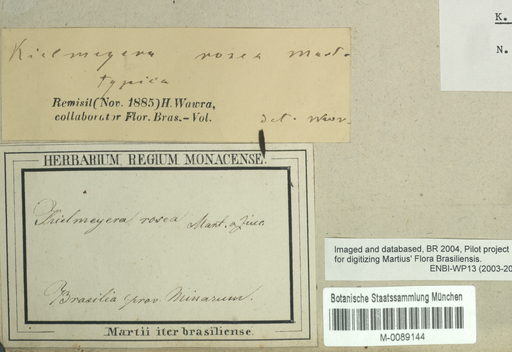 Kielmeyera rosea Mart.
typica
Remisit (Nov. 1885) H. Wawra,
collaborator Flor. Bras.-Vol.
det. Wawr.
HERBARIUM REGIUM MONACENSE.
Kielmeyera rosea Mart. & Zucc.
Brasilia prov. Minarum.
Martii iter brasiliense.
K.
N.
Imaged and databased, BR 2004, Pilot project
for digitizing Martius' Flora Brasiliensis.
ENBI-WP13 (2003-20
Botanische Staatssammlung München
M-0089144